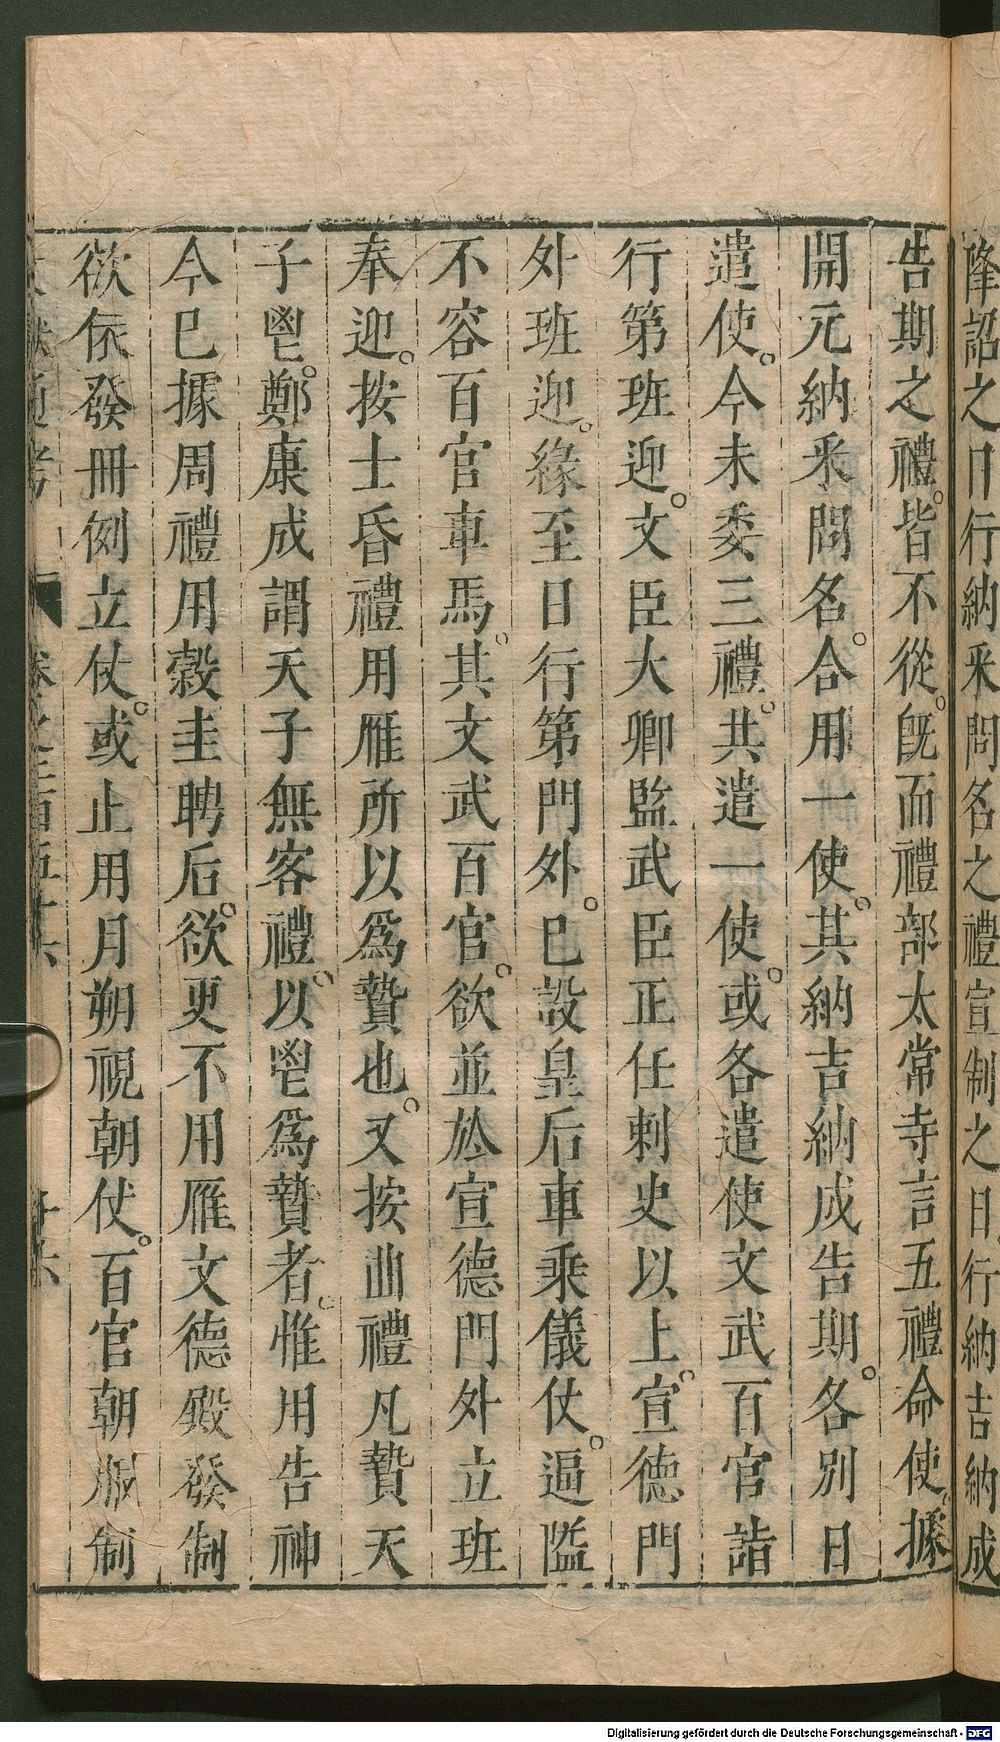 降詔之日行納釆問名之禮宣制之日行納吉納成
告期之禮。皆不從。旣而禮部太常寺言五禮命使。據
開元納釆問名。合用一使。其納吉納成告期。各別日
遣使。今未委三禮。共遣一使。或各遣使文武百官詣
行第班迎。文臣大卿監武臣正任刺史以上。宣德門
外班迎。緣至日行第門外。已設皇后車乘儀仗。逼隘
不容百官車馬。其文武百官。欲並於宣德門外立班
奉迎。按士昏禮用雁所以爲贄也。又按曲禮凡贄天
子鬯。鄭康成謂天子無客禮。以鬯爲贄者。惟用告神
今已據周禮用穀圭聘后。欲更不用雁文德殿發制
欲依發冊例立仗。或止用月朔視朝仗。百官朝服制
卷之三百五十六
Digitalisierung gefördert durch die Deutsche Forschungsgemeinschaft - DFG